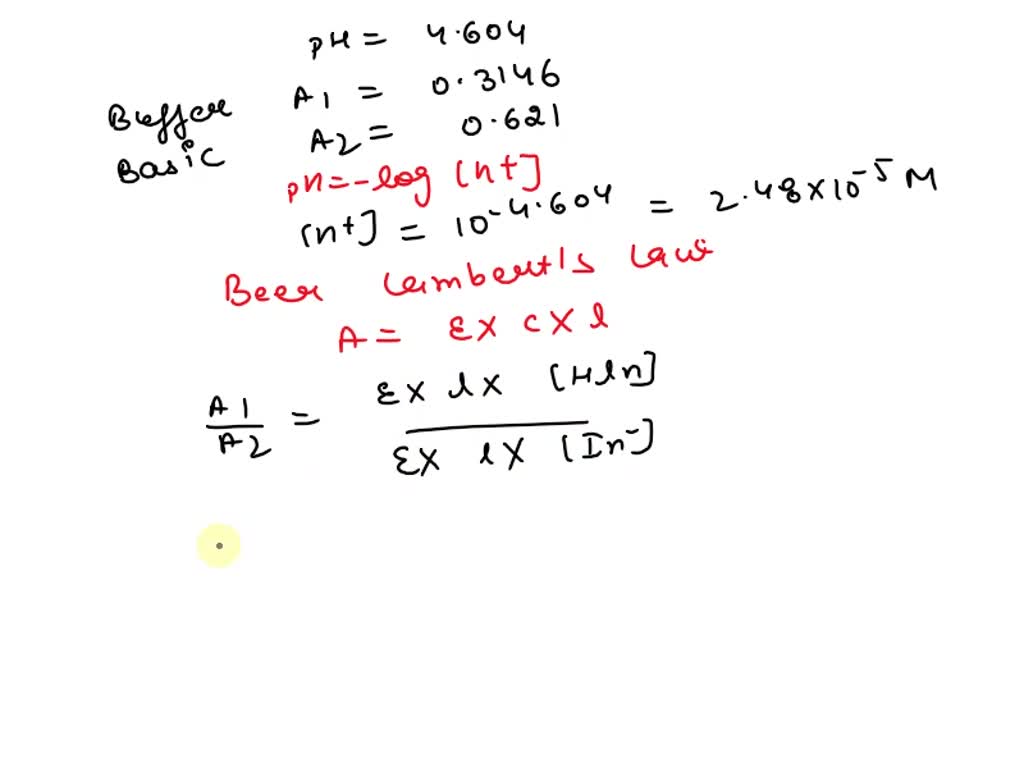 pH = 4.604
Buffer A1 = 0.3146
Basic A2 = 0.621
pH = -log [H+]
[H+] = 10-4.604 = 2.48 × 10-5 M
Beer Lambert's law
A = Ɛ × c × l
A1/A2 = Ɛ × l × [HIn] / Ɛ × l × [In-]